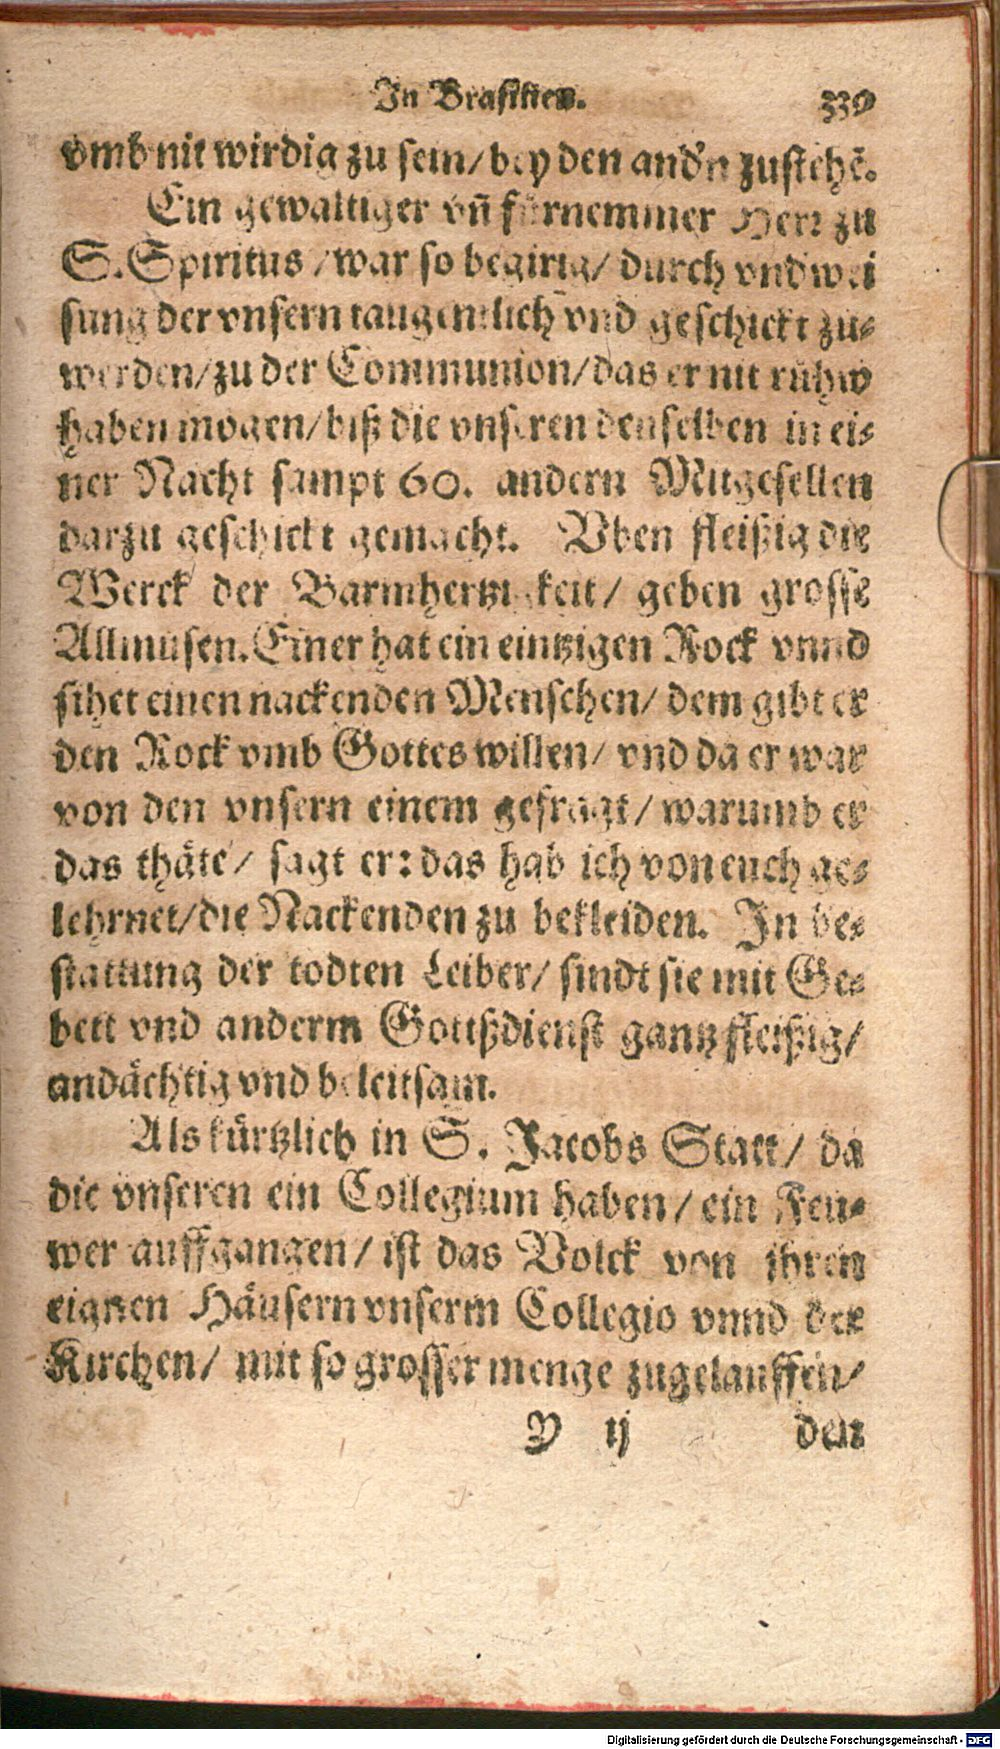 In Brasilien. 339
vmb nit wirdig zu sein/ bey den and'n zustehē.
Ein gewaltiger vn̄ fürnemmer Herr zu
S. Spiritus/ war so begirig/ durch vndwei
sung der vnsern taugentlich vnd geschickt zu-
werden/ zu der Communion/ das er nit rühw
haben mögen/ biß die vnseren denselben in ei-
ner Nacht sampt 60. andern Mitgesellen
darzu geschickt gemacht. Vben fleißig die
Werck der Barmhertzigkeit/ geben grosse
Allmusen. Einer hat ein eintzigen Rock vnnd
sihet einen nackenden Menschen/ dem gibt er
den Rock vmb Gottes willen/ vnd da er war
von den vnsern einem gefragt/ warumb er
das thäte/ sagt er: das hab ich von euch ge-
lehrnet/ die Nackenden zu bekleiden. In be-
stattung der todten Leiber/ sindt sie mit Ge-
bett vnd anderm Gottßdienst gantz fleißig/
andächtig vnd beleitsam.
Als kürtzlich in S. Jacobs Statt/ da
die vnseren ein Collegium haben/ ein Feu-
wer auffgangen/ ist das Volck von ihren
eignen Häusern vnserm Collegio vnnd der
Kirchen/ mit so grosser menge zugelauffen/
Y ij den
Digitalisierung gefördert durch die Deutsche Forschungsgemeinschaft - DFG